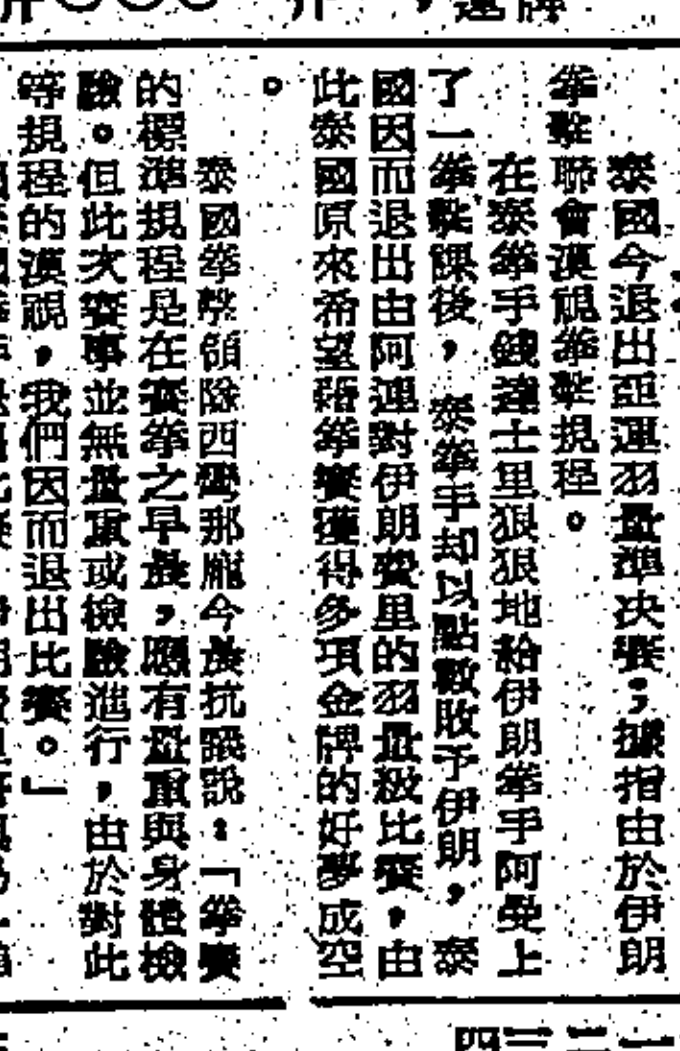 泰國今退出亞運羽量準决賽；據指由於伊朗
拳擊聯會漠視拳擊規程。
在泰拳手錢達士里狠狠地給伊朗拳手阿曼上
了一拳擊課後，泰拳手却以點數敗予伊朗，泰
國因而退出由阿運對伊朗費里的羽量級比賽，由
此泰國原來希望藉拳賽獲得多項金牌的好夢成空
。
泰國拳擊領隊西灣那龐今晨抗議說：「拳賽
的標準規程是在賽拳之早晨，應有量重與身體檢
驗。但此次賽事並無量重或檢驗進行，由於對此
等規程的漠視，我們因而退出比賽。」